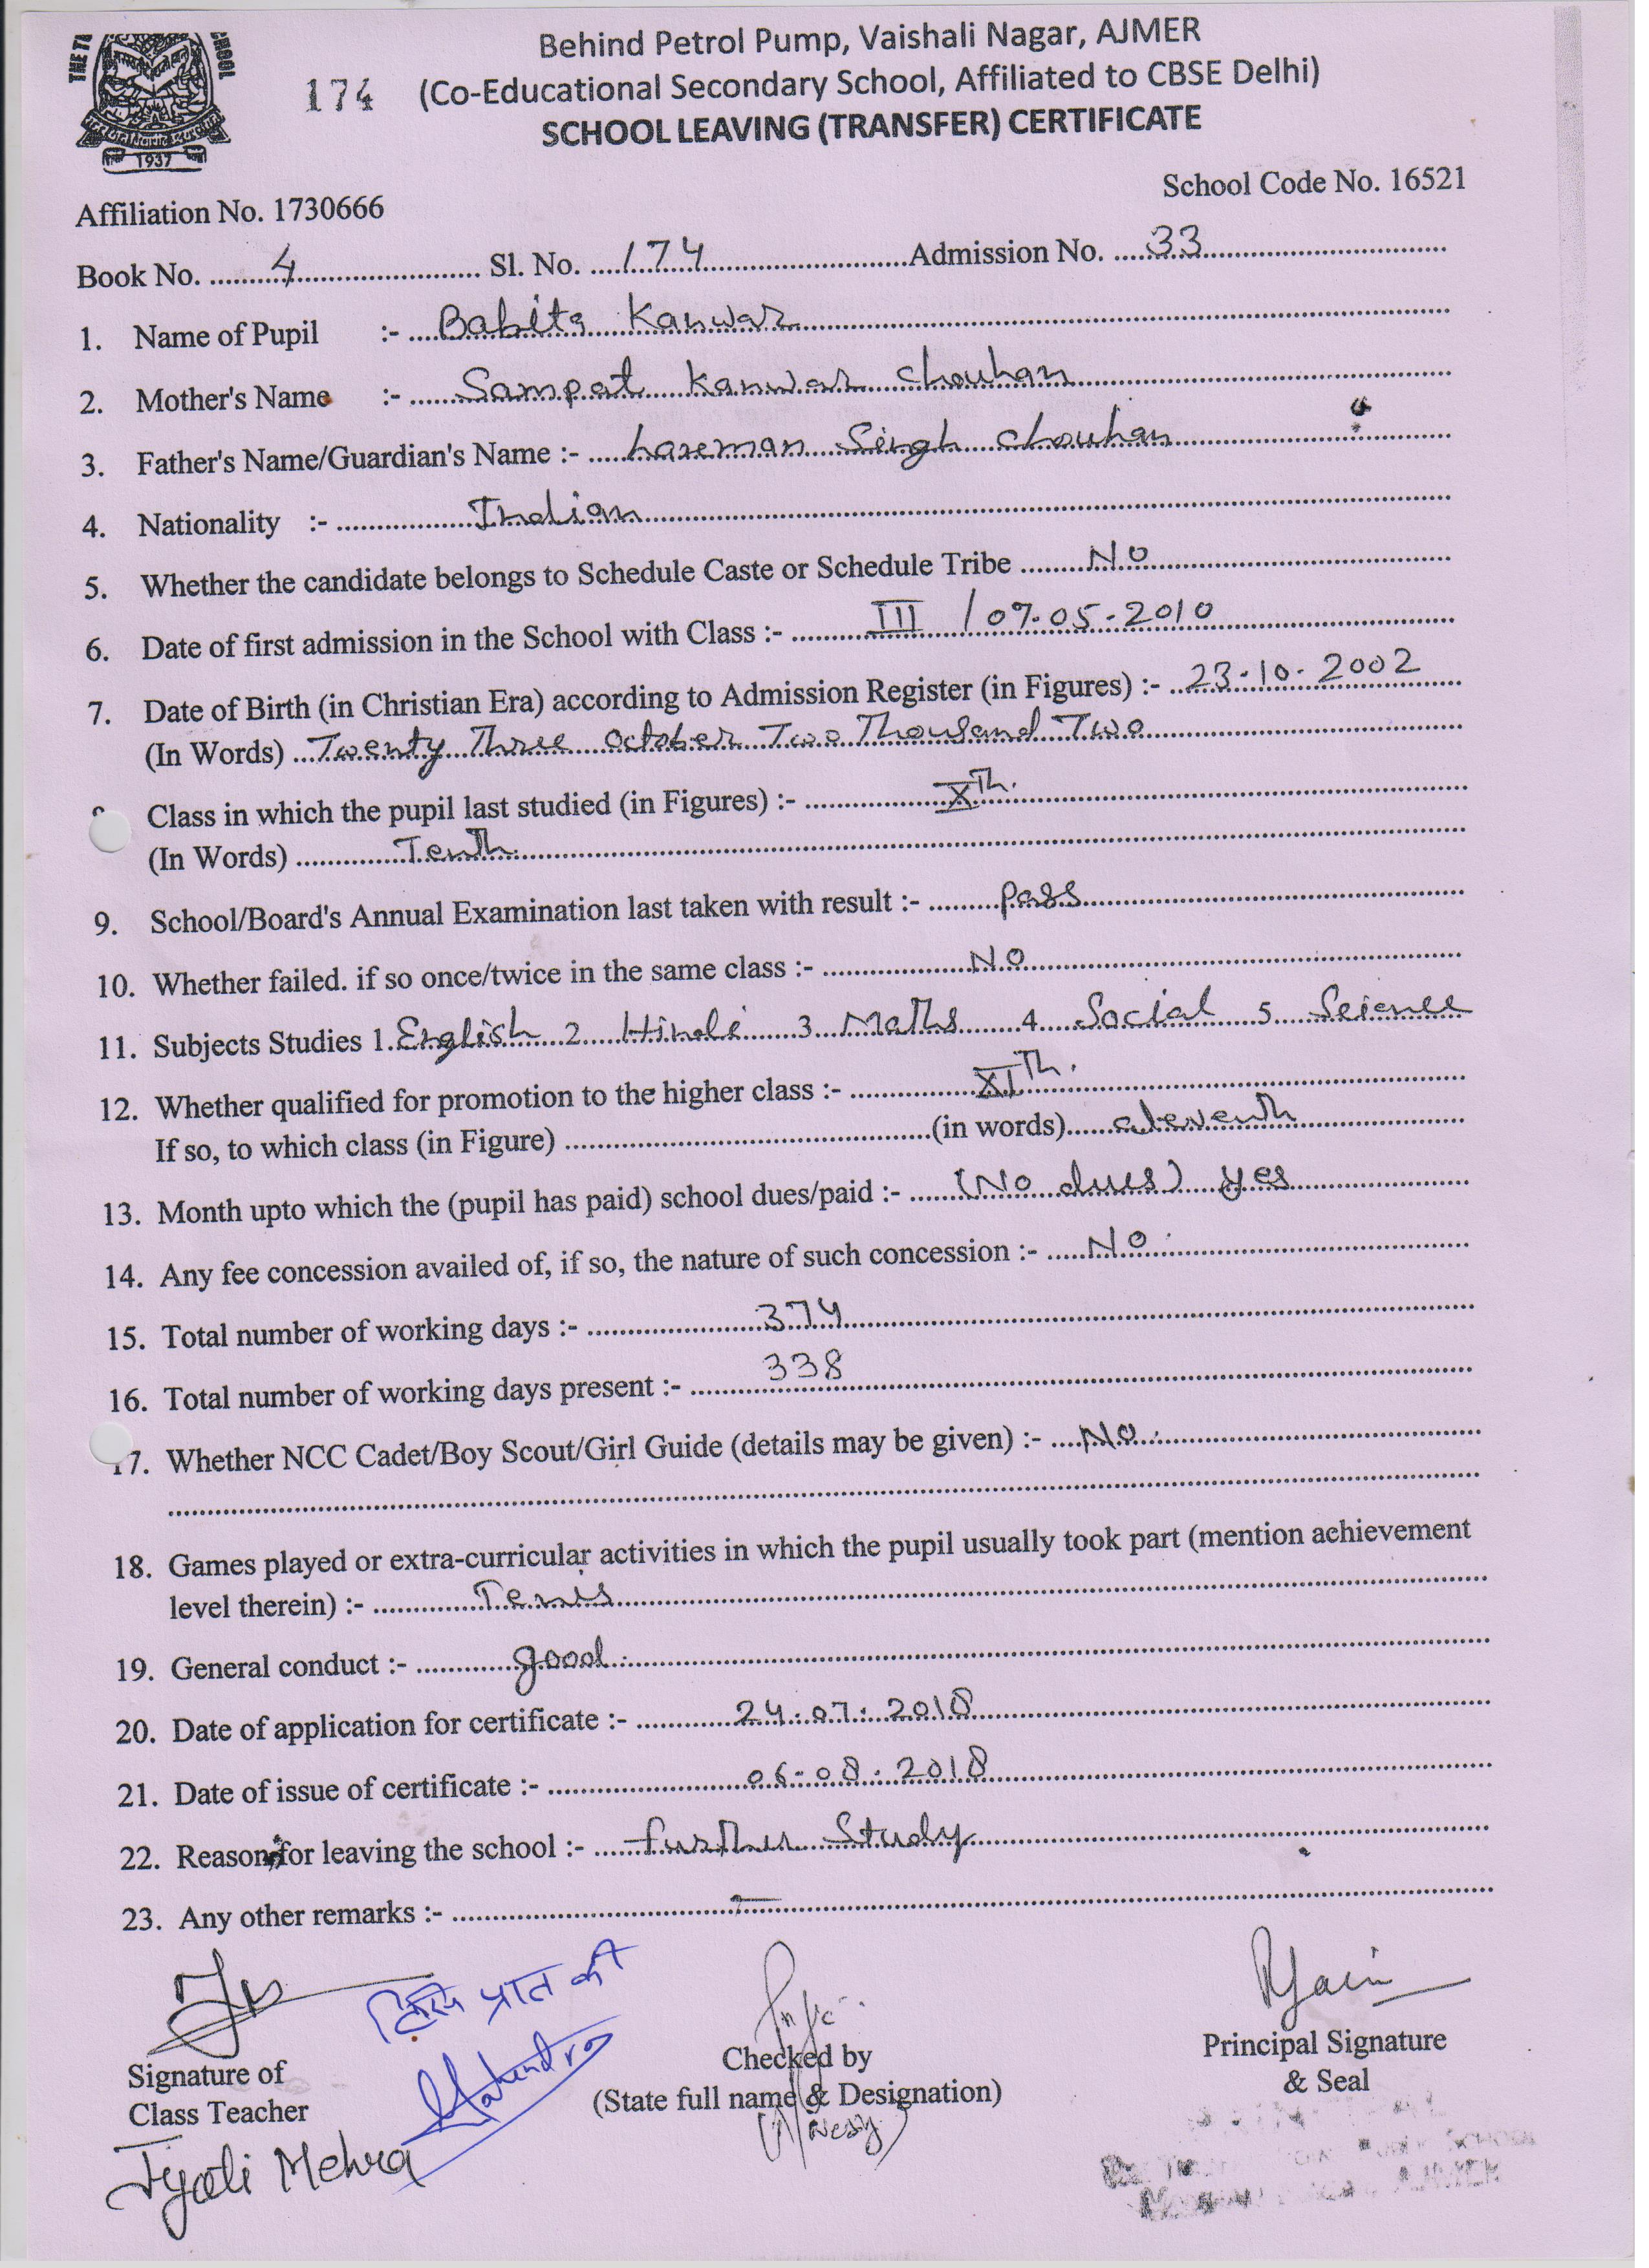 Behind Petrol Pump, Vaishali Nagar, AJMER
174 (Co-Educational Secondary School, Affiliated to CBSE Delhi)
SCHOOL LEAVING (TRANSFER) CERTIFICATE
1937
School Code No. 16521
Affiliation No. 1730666
Book No. 4 Sl. No. 174 Admission No. 33
1. Name of Pupil :- Babita Kanwar
2. Mother's Name :- Sampat Kanwar Chouhan
3. Father's Name/Guardian's Name :- Laxman Singh Chouhan
4. Nationality :- Indian
5. Whether the candidate belongs to Schedule Caste or Schedule Tribe No
6. Date of first admission in the School with Class :- III / 07-05-2010
7. Date of Birth (in Christian Era) according to Admission Register (in Figures) :- 23-10-2002
(In Words) Twenty Three October Two Thousand Two
Class in which the pupil last studied (in Figures) :- Xth.
(In Words) Tenth
9. School/Board's Annual Examination last taken with result :- Pass
10. Whether failed. if so once/twice in the same class :- No
11. Subjects Studies 1. English 2. Hindi 3. Maths 4. Social 5. Science
12. Whether qualified for promotion to the higher class :- XIth.
If so, to which class (in Figure) (in words) eleventh
13. Month upto which the (pupil has paid) school dues/paid :- (No dues) yes
14. Any fee concession availed of, if so, the nature of such concession :- No
15. Total number of working days :- 374
16. Total number of working days present :- 338
17. Whether NCC Cadet/Boy Scout/Girl Guide (details may be given) :- No
18. Games played or extra-curricular activities in which the pupil usually took part (mention achievement
level therein) :- Tenis
19. General conduct :- good
20. Date of application for certificate :- 24.07.2018
21. Date of issue of certificate :- 06-08.2018
22. Reason for leaving the school :- further Study
23. Any other remarks :- -
प्राप्त की
Mahendra
Signature of
Class Teacher
Jyoti Mehra
Checked by
(State full name & Designation)
RJain
Principal Signature
& Seal